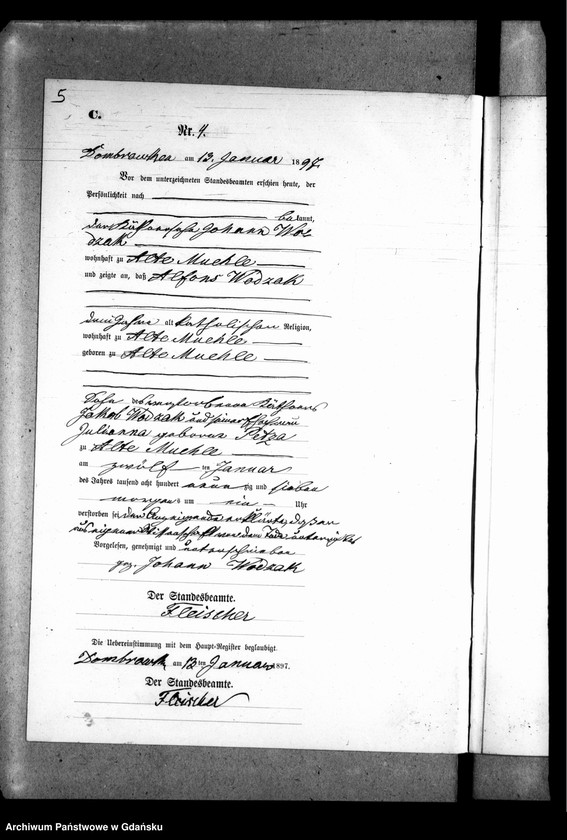 5
C.
Nr. 4.
Dombrowken am 13. Januar 1897.
Vor dem unterzeichneten Standesbeamten erschien heute, der
Persönlichkeit nach
bekannt,
der Käthner Johann Wod
zak
wohnhaft zu Alte Muehle
und zeigte an, daß Alfons Wodzak
drei Jahre alt katholischer Religion,
wohnhaft zu Alte Muehle
geboren zu Alte Muehle
Sohn des verstorbenen Käthners
Jakob Wodzak und seiner Ehefrau
Julianna geborene
zu Alte Muehle
am zwölf ten Januar
des Jahres tausend acht hundert neun zig und sieben
morgens um ein Uhr
verstorben sei der Anzeigende erklärte, daß er
aus eigener Wissenschaft von dem Tode unterrichtet
Vorgelesen, genehmigt und unterschrieben
gez. Johann Wodzak
Der Standesbeamte.
Fleischer
Die Uebereinstimmung mit dem Haupt-Register beglaubigt.
Dombrowk am 13 ten Januar 1897.
Der Standesbeamte.
Fleischer
Archiwum Państwowe w Gdańsku